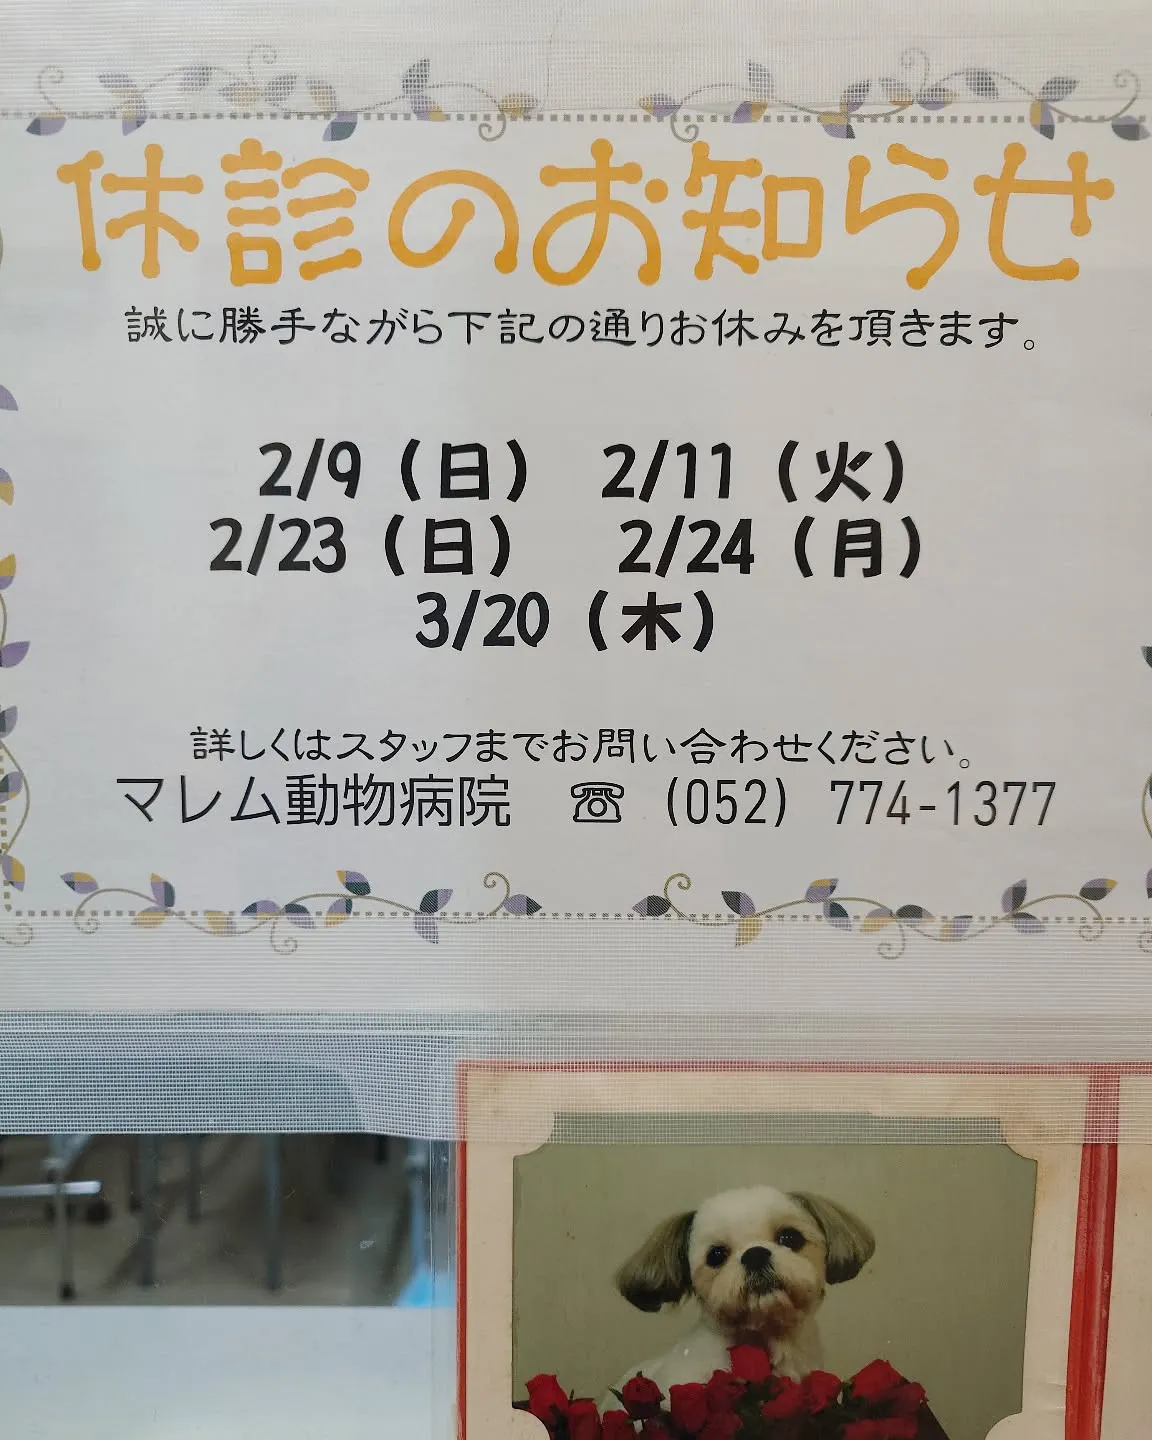 休診のお知らせ
誠に勝手ながら下記の通りお休みを頂きます。
2/9（日） 2/11（火）
2/23（日） 2/24（月）
3/20（木）
詳しくはスタッフまでお問い合わせください。
マレム動物病院 ☎ (052) 774-1377